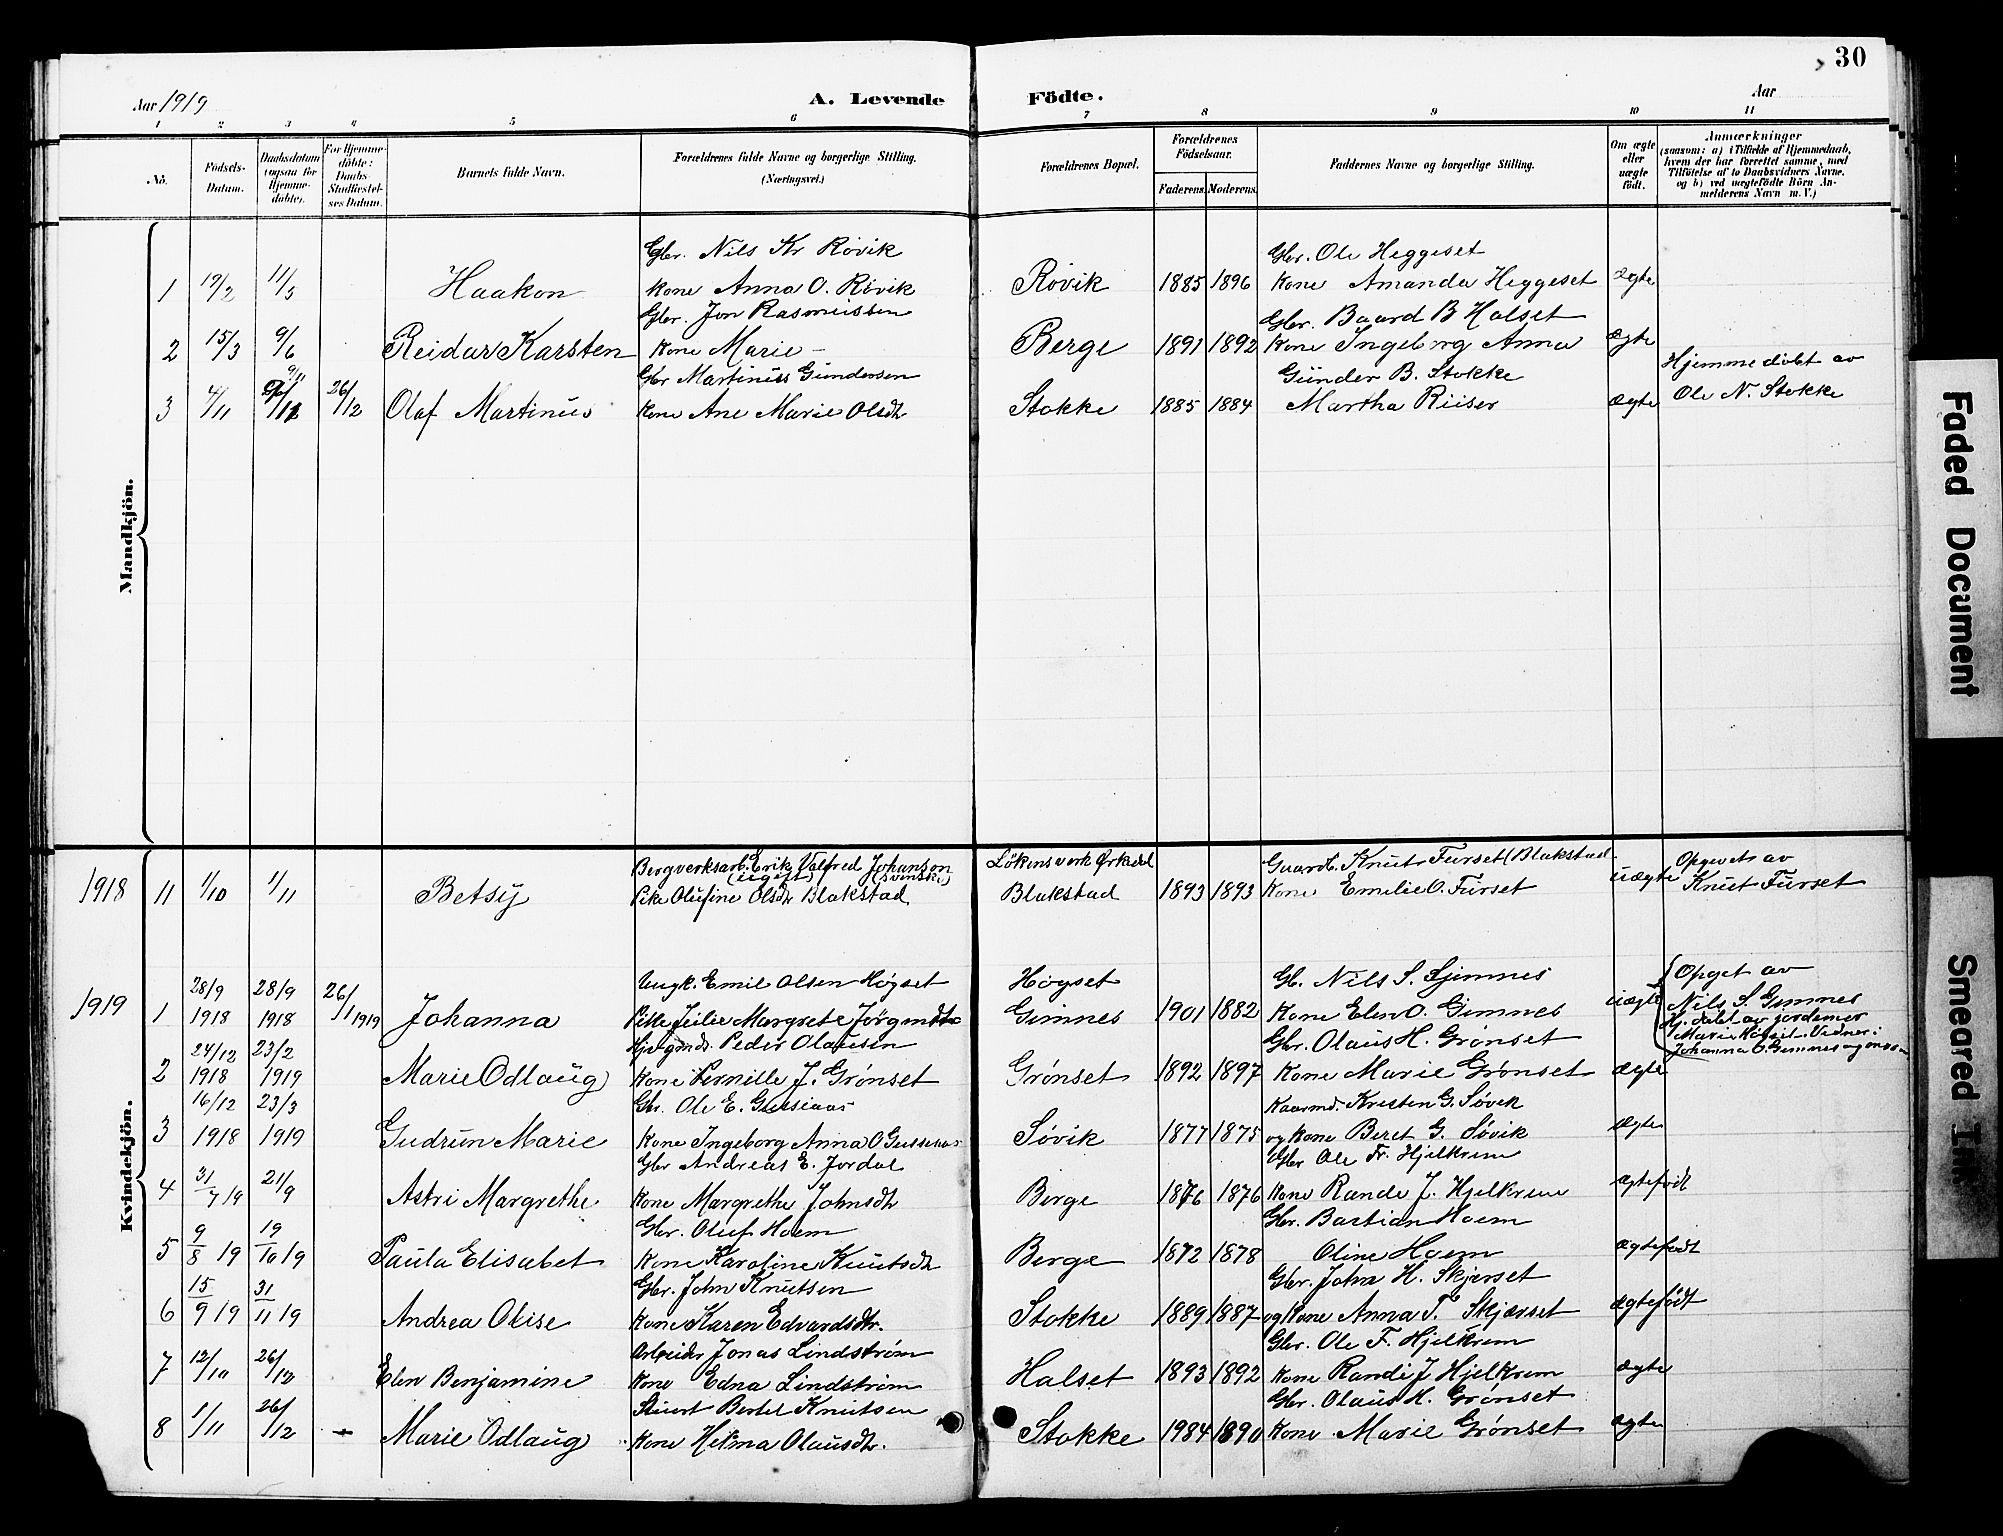 30
Aar 1919
A. Levende Födte.
Aar
1 2 3 4 5 6 7 8 9 10 11
No.
Födsels-Datum.
Daabsdatum (ogsaa for Hjemme-döbte).
For Hjemme-döbte: Daabs-Stadfæstel-ses Datum.
Barnets fulde Navn.
Forældrenes fulde Navne og borgerlige Stilling. (Næringsvei.)
Forældrenes Bopæl.
Forældrenes Födselsaar.
Faderens. Moderens.
Faddernes Navne og borgerlige Stilling.
Om ægte eller uægte födt.
Anmærkninger
(saasom: a) i Tilfælde af Hjemmedaab,
hvem der har forrettet samme, med
Tilföielse af to Daabsvidners Navne,
og b) ved uægtefödte Börn An-
melderens Navn m. V.)
Mandkjön.
Gbr. Nils Kr Røvik Gbr. Ole Heggeset
1 19/2 11/5 Haakon Kone Anna O. Røvik Røvik 1885 1896 Kone Amanda Heggeset ægte
Gbr. Jon Rasmussen Gbr. Baard B Halset
2 15/3 9/6 Reidar Karsten Kone Marie – Berge 1891 1892 Kone Ingeborg Anna ægte
Gbr Martinus Gundersen Gunder B. Stokke Hjemmedøbt av
3 4/11 9/11 26/12 Olaf Martinus Kone Ane Marie Olsdtr Stokke 1885 1884 Martha Riiser ægte Ole N. Stokke
Kvindekjön.
Bergverksarb. Erik Valfred Johanson (ugift) (svenske) Løkens verk Ørkedal Gaardb. Knut Furset (Blakstad. Opgevet av
1918 11 1/10 1/11 Betsy Pike Olufine Olsdtr Blakstad Blakstad 1893 1893 Kone Emelie O. Furset uægte Knut Furset
28/9 28/9 26/1 Ungk. Emil Olsen Høgset Høgset Gb. Nils S. Gimnes Opget av
1919 1 1918 1918 1919 Johanna Pike Margrete Gimnes 1901 1882 Kone Elen O. Gimnes uægte Nils S. Gimnes
av jordemor
24/12 23/2 Peder Olausen Gbr. Olaus H. Grønset Johanna O. Gimnes
2 1918 1919 Marie Odlaug Kone Pernille J. Grønset Grønset 1892 1897 Kone Marie Grønset ægte
16/12 23/3 Gbr. Ole E. Gussiaas Kaarmd. Kristen G. Søvik
3 1918 1919 Gudrun Marie Kone Ingeborg Anna O Søvik 1877 1875 og kone Beret G. Søvik ægte
Gbr Andreas E. Jordal Gbr Ole Fr. Hjelkrem
4 31/7 19 21/9 Astri Margrethe Kone Margrethe Johnsdtr Berge 1876 1876 Kone Rande J. Hjelkrem ægtefødt
Gbr. Oluf Hoem Gbr. Bastian Hoem
5 9/8 19 19/10 19 Paula Elisabet Kone Karoline Knutsdtr Berge 1872 1878 Oline Hoem ægtefødt
Gbr. John Knutsen Gbr. John H. Skjerset
6 15/9 19 31/11 19 Andrea Olise Kone Karen Edvardsdtr. Stokke 1889 1887 og Kone Anna T. Skjærset ægtefødt
Arbeider Jonas Lindstrøm Gbr. Ole F. Hjelkrem
7 12/10 26/12 Elen Benjamine Kone Edna Lindstrøm Halset 1893 1892 Kone Randi J Hjelkrem ægte
Bertel Knutsen Gbr. Olaus H. Grønset
8 1/11 26/12 – Marie Odlaug Kone Helma Olausdtr. Stokke 1984 1890 Kone Marie Grønset ægte
Faded Document
Smeared Ink